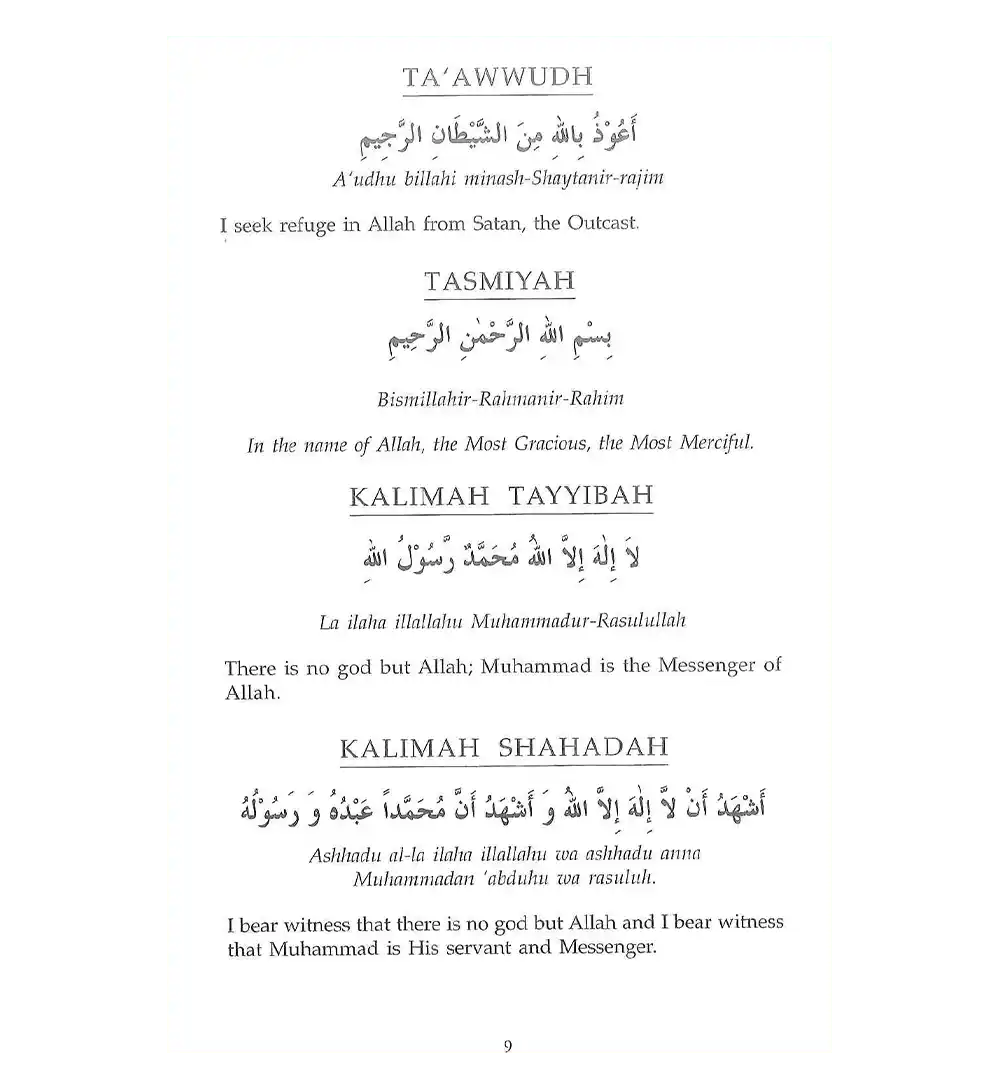 TA'AWWUDH
أَعُوْذُ بِاللهِ مِنَ الشَّيْطَانِ الرَّجِيمِ
A'udhu billahi minash-Shaytanir-rajim
I seek refuge in Allah from Satan, the Outcast.
TASMIYAH
بِسْمِ اللهِ الرَّحْمٰنِ الرَّحِيمِ
Bismillahir-Rahmanir-Rahim
In the name of Allah, the Most Gracious, the Most Merciful.
KALIMAH TAYYIBAH
لاَ إِلٰهَ إِلاَّ اللهُ مُحَمَّدٌ رَّسُوْلُ اللهِ
La ilaha illallahu Muhammadur-Rasulullah
There is no god but Allah; Muhammad is the Messenger of
Allah.
KALIMAH SHAHADAH
أَشْهَدُ أَنْ لاَّ إِلٰهَ إِلاَّ اللهُ وَ أَشْهَدُ أَنَّ مُحَمَّداً عَبْدُهُ وَ رَسُوْلُهُ
Ashhadu al-la ilaha illallahu wa ashhadu anna
Muhammadan 'abduhu wa rasuluh.
I bear witness that there is no god but Allah and I bear witness
that Muhammad is His servant and Messenger.
9